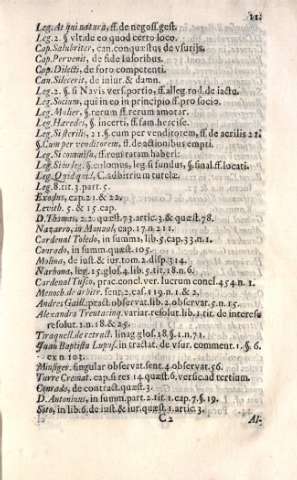 11.
Leg. At qui natura, ff. de negoss. gest.
Leg. 2. § vlt. de eo quod certo loco.
Cap. Salubriter, can. conquæstus de vsurijs.
Cap. Pervenit, de fide iusoribus.
Cap. Dilecti, de foro competenti.
Can. Si lcerit, de iniur. & damn.
Leg. 2. §. si Navis vers. portio, ff. alleg. rod. de iacto.
Leg. Socium, qui in eo in principio ff. pro socio.
Leg. Mulier, §. rerum ff. rerum amotar.
Leg. Hæredes, §. incerti, ff. fam. hercisc.
Leg. Si sterilis, 21. §. cum per venditorem, ff. de
§. Cum per venditorem, ff. de actionibus empti.
Leg. Si commissa, ff. rem ratam haberi:
Leg. Si in lege, §. colonus, leg. si fundus, § final. ff. locati.
Leg. C. ad bitrium tutelæ.
Leg. 8. tit. 3. part. 5.
Exodus, cap. 21. & 22.
Levith. 5. & 15. cap.
D. Thomas, 2.2. quæst. 73. artic. 3. & quæst. 78.
Nazarro, in Manual, cap. 17. n. 211.
Cardenal Toledo, in summa, lib. 5. cap. 33. n. 1.
Conrado, in summ. quæst. 105.
Molina, de iust. & iur. tom. 2. disp. 314.
Narbona, leg. 15. glos. 4. lib. 5. tit. 18. n. 6.
Cardenal Tusco, prac. concl. ver. lucrum concl. 454. n. 1.
Menoch. de arbitr. sent. 2. cas. 119. n. 1. & 2.
Andres Gaill. pract. observat. lib. 2. observat. 5. n. 15.
Alexandro Trentacinq. variar. resolut. lib. 1. tit. de interesu
resolut. 1. n. 18. & 25.
Tiraquell. de retract. linag. glos. 18. §. 1. n. 71.
Juan Baptista Lupus, in tractat. de vsur. comment. 1. §. 6.
ex n. 103.
Minsiger, singular observat. sent. 4. observat. 56.
Turre Cremat. cap. si res 14. quæst. 6. versic. ad tertium.
Conrado, de contract. quæst. 3.
D. Antoninus, in summ. part. 2. tit. 1. cap. 7. §. 19.
Soto, in lib. 6. de iust. & iur. quæst. 1. artic. 3.
C2 Al-